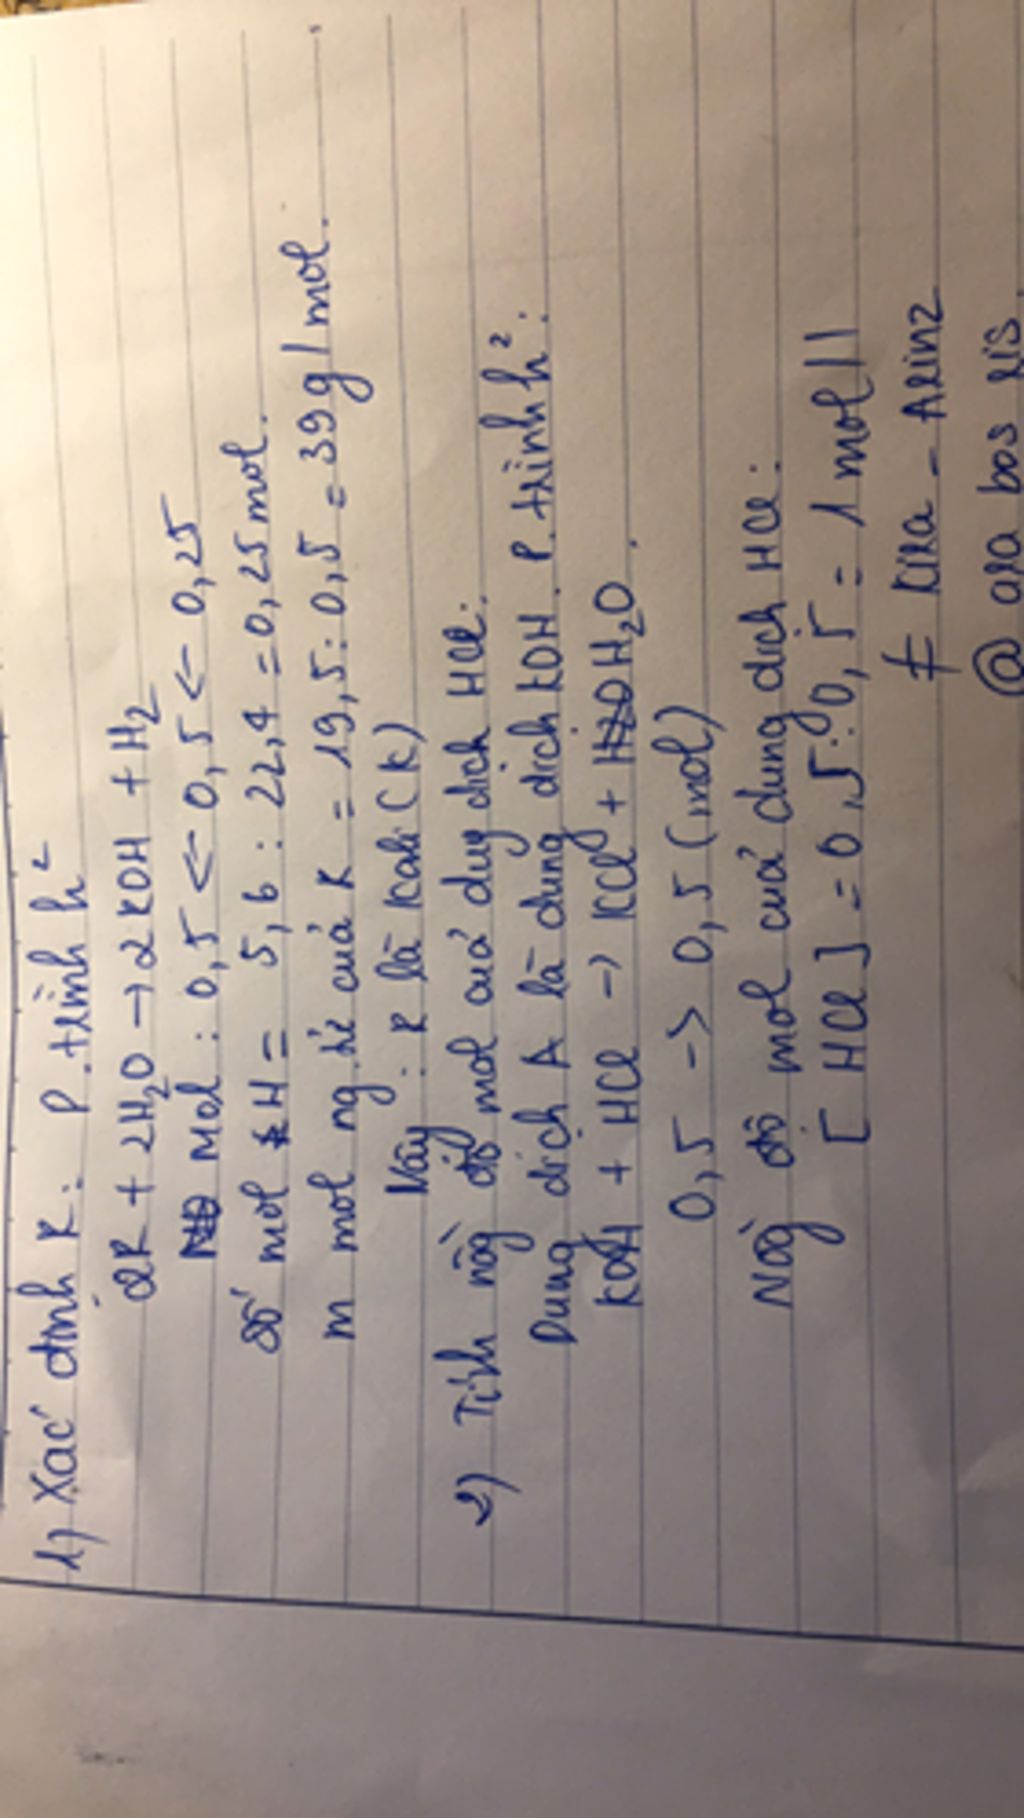 1) Xác định R: P.trình h²
2R + 2H₂O → 2KOH + H₂
Mol: 0,5 ← 0,5 ← 0,25
Số mol H = 5,6 : 22,4 = 0,25 mol.
m mol ng.tử của K = 19,5 : 0,5 = 39 g/mol.
Vậy: R là Kali (K)
2) Tính nồg độ mol của dug dịch HCl:
Dung dịch A là dung dịch KOH. P.trình h²:
KOH + HCl → KCl + H₂O.
0,5 -> 0,5 (mol)
Nồg độ mol của dung dịch HCl:
[HCl] = 0,5 : 0,5 = 1 mol/l
≠ Kira - Arinz
@ ara bos ris